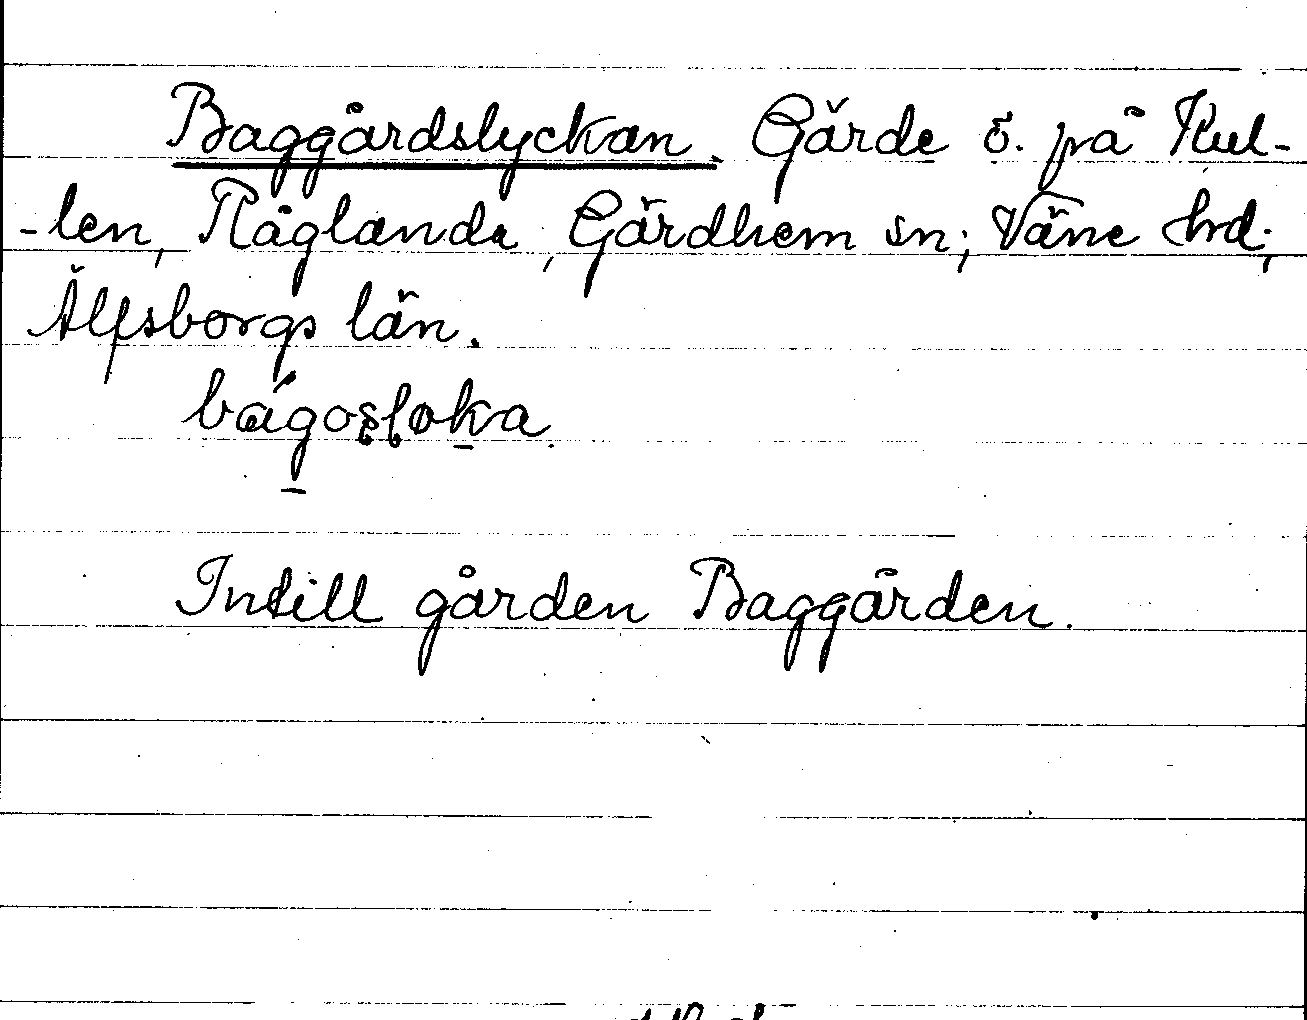 Baggårdslyckan. Gärde ö. på Kul-
-len, Råglanda, Gärdhem sn; Väne hd;
Älfsborgs län.
Intill gården Baggården.